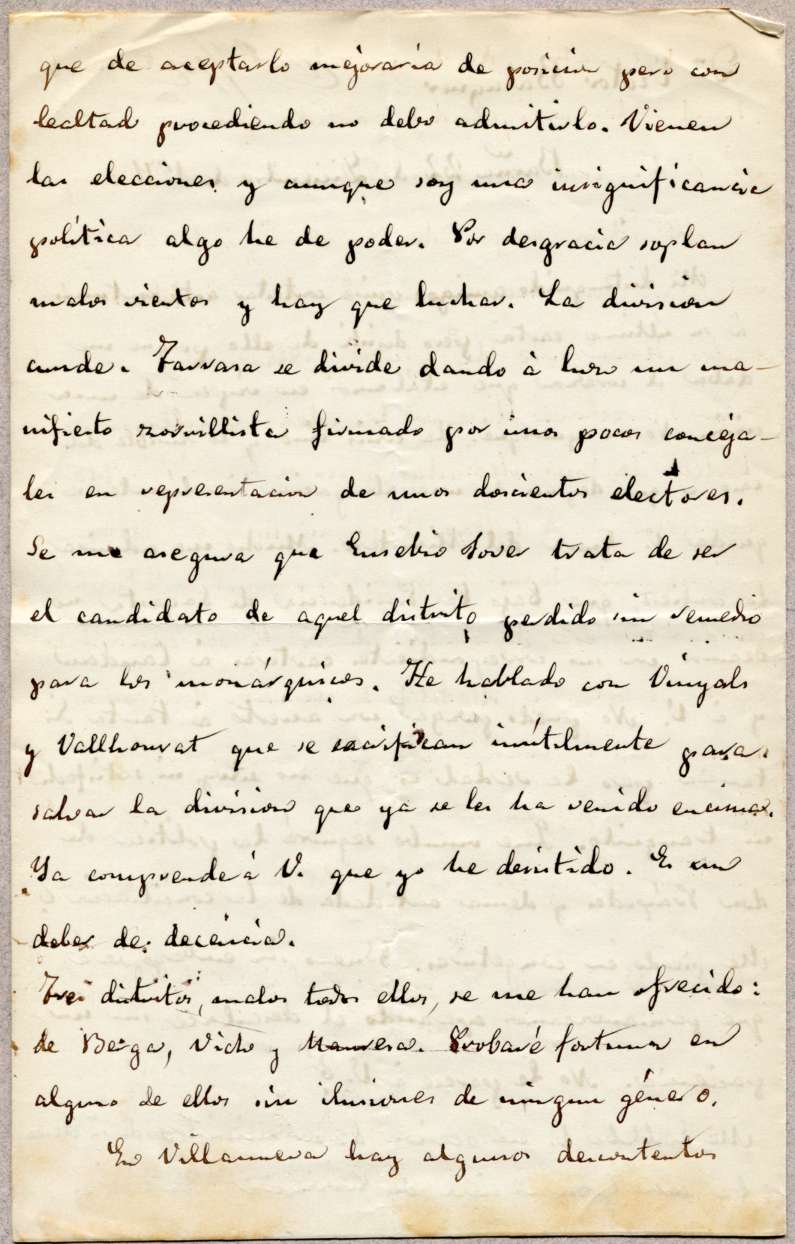 que de aceptarlo mejoraria de posicion pero con
lealtad procediendo no debo admitirlo. Vienen
las elecciones y aunque soy una insignificancia
política algo he de poder. Por desgracia soplan
malos vientos y hay que luchar. La division
cunde. Tarrasa se divide dando á luz un ma-
nifiesto zorrillista firmado por unos pocos conceja-
les en representacion de unos doscientos electores.
Se me asegura que Eusebio Jover trata de ser
el candidato de aquel distrito perdido sin remedio
para los monárquicos. He hablado con Vinyals
y Vallhonrat que se sacrifican inútilmente para
salvar la division que ya se les ha venido encima.
Ya comprenderá V. que yo he desistido. Es un
deber de decencia.
Tres distritos, malos todos ellos, se me han ofrecido:
de Berga, Vich y Manresa. Probaré fortuna en
alguno de ellos sin ilusiones de ningun género.
En Villanueva hay algunos descontentos